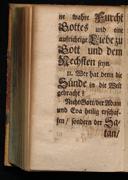 ne wahre Furcht
Gottes und eine
aufrichtige Liebe zu
Gott und dem
Nechsten seyn.
11. Wer hat denn die
Sünde in die Welt
gebracht?
Nicht Gott/ der Adam
und Eva heilig erschaf-
fen/ sondern der Sa-
tan/